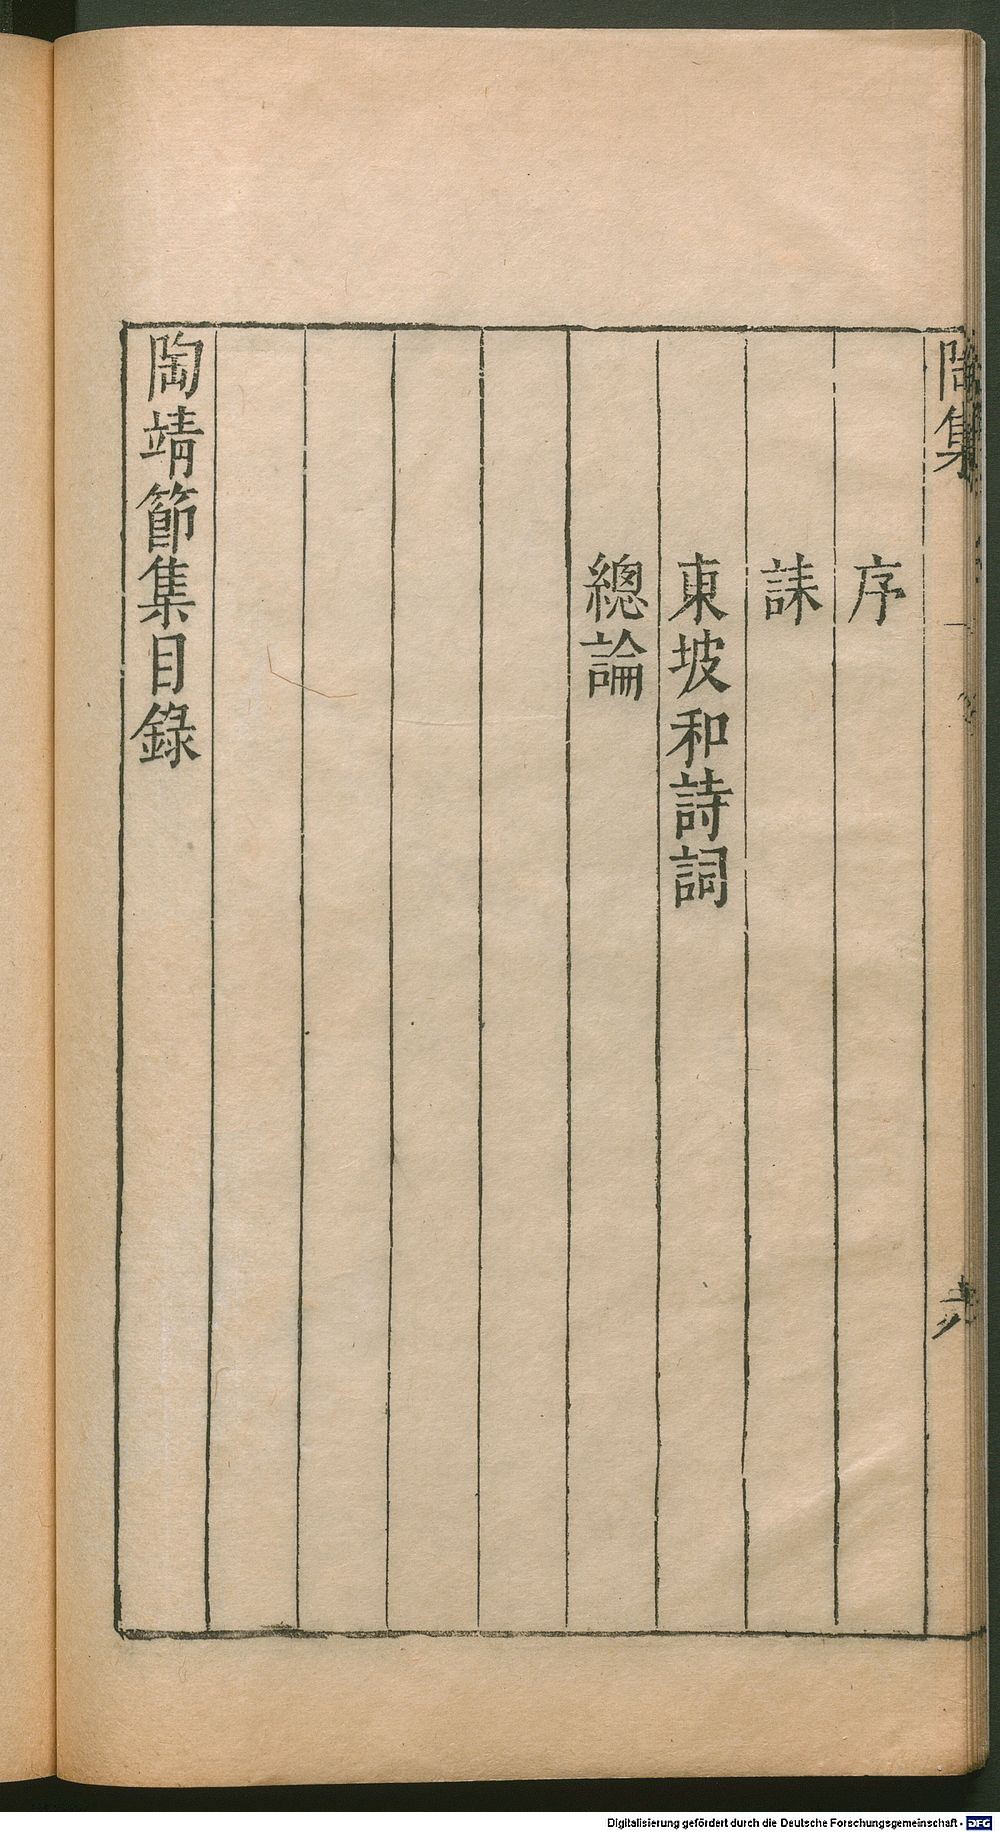 陶集
序
誄
東坡和詩詞
總論
陶靖節集目錄
Digitalisierung gefördert durch die Deutsche Forschungsgemeinschaft - DFG